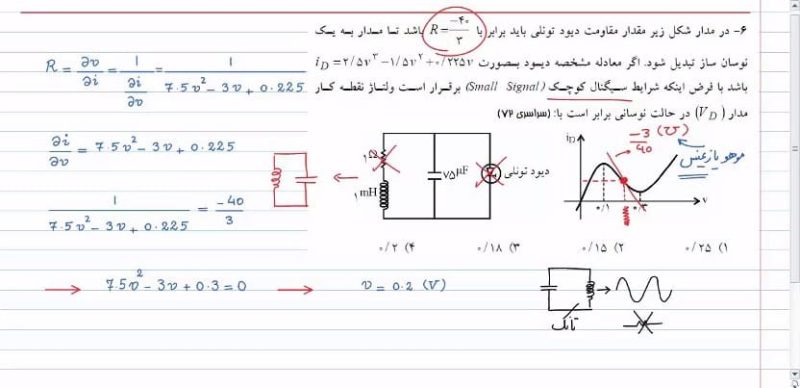 ۶- در مدار شکل زیر مقدار مقاومت دیود تونلی باید برابر با R = -۴۰/۳ باشد تا مدار به یک
نوسان ساز تبدیل شود. اگر معادله مشخصه دیود بصورت i_D = ۲/۵v^۳ - ۱/۵v^۲ + ۰/۲۲۵v
باشد با فرض اینکه شرایط سیگنال کوچک (Small Signal) برقرار است ولتاژ نقطه کار
مدار (V_D) در حالت نوسانی برابر است با: (سراسری ۷۲)
R = ∂v/∂i = 1/(∂i/∂v) = 1/(7.5v^2 - 3v + 0.225)
∂i/∂v = 7.5v^2 - 3v + 0.225
1/(7.5v^2 - 3v + 0.225) = -40/3
۱Ω
۱mH
۷۵μF
دیود تونلی
i_D
-3/40 (℧)
v
۰/۱
۰/۳
۱) ۰/۲۵
۲) ۰/۱۵
۳) ۰/۱۸
۴) ۰/۲
→ 7.5v^2 - 3v + 0.3 = 0 → v = 0.2 (V)
تانک